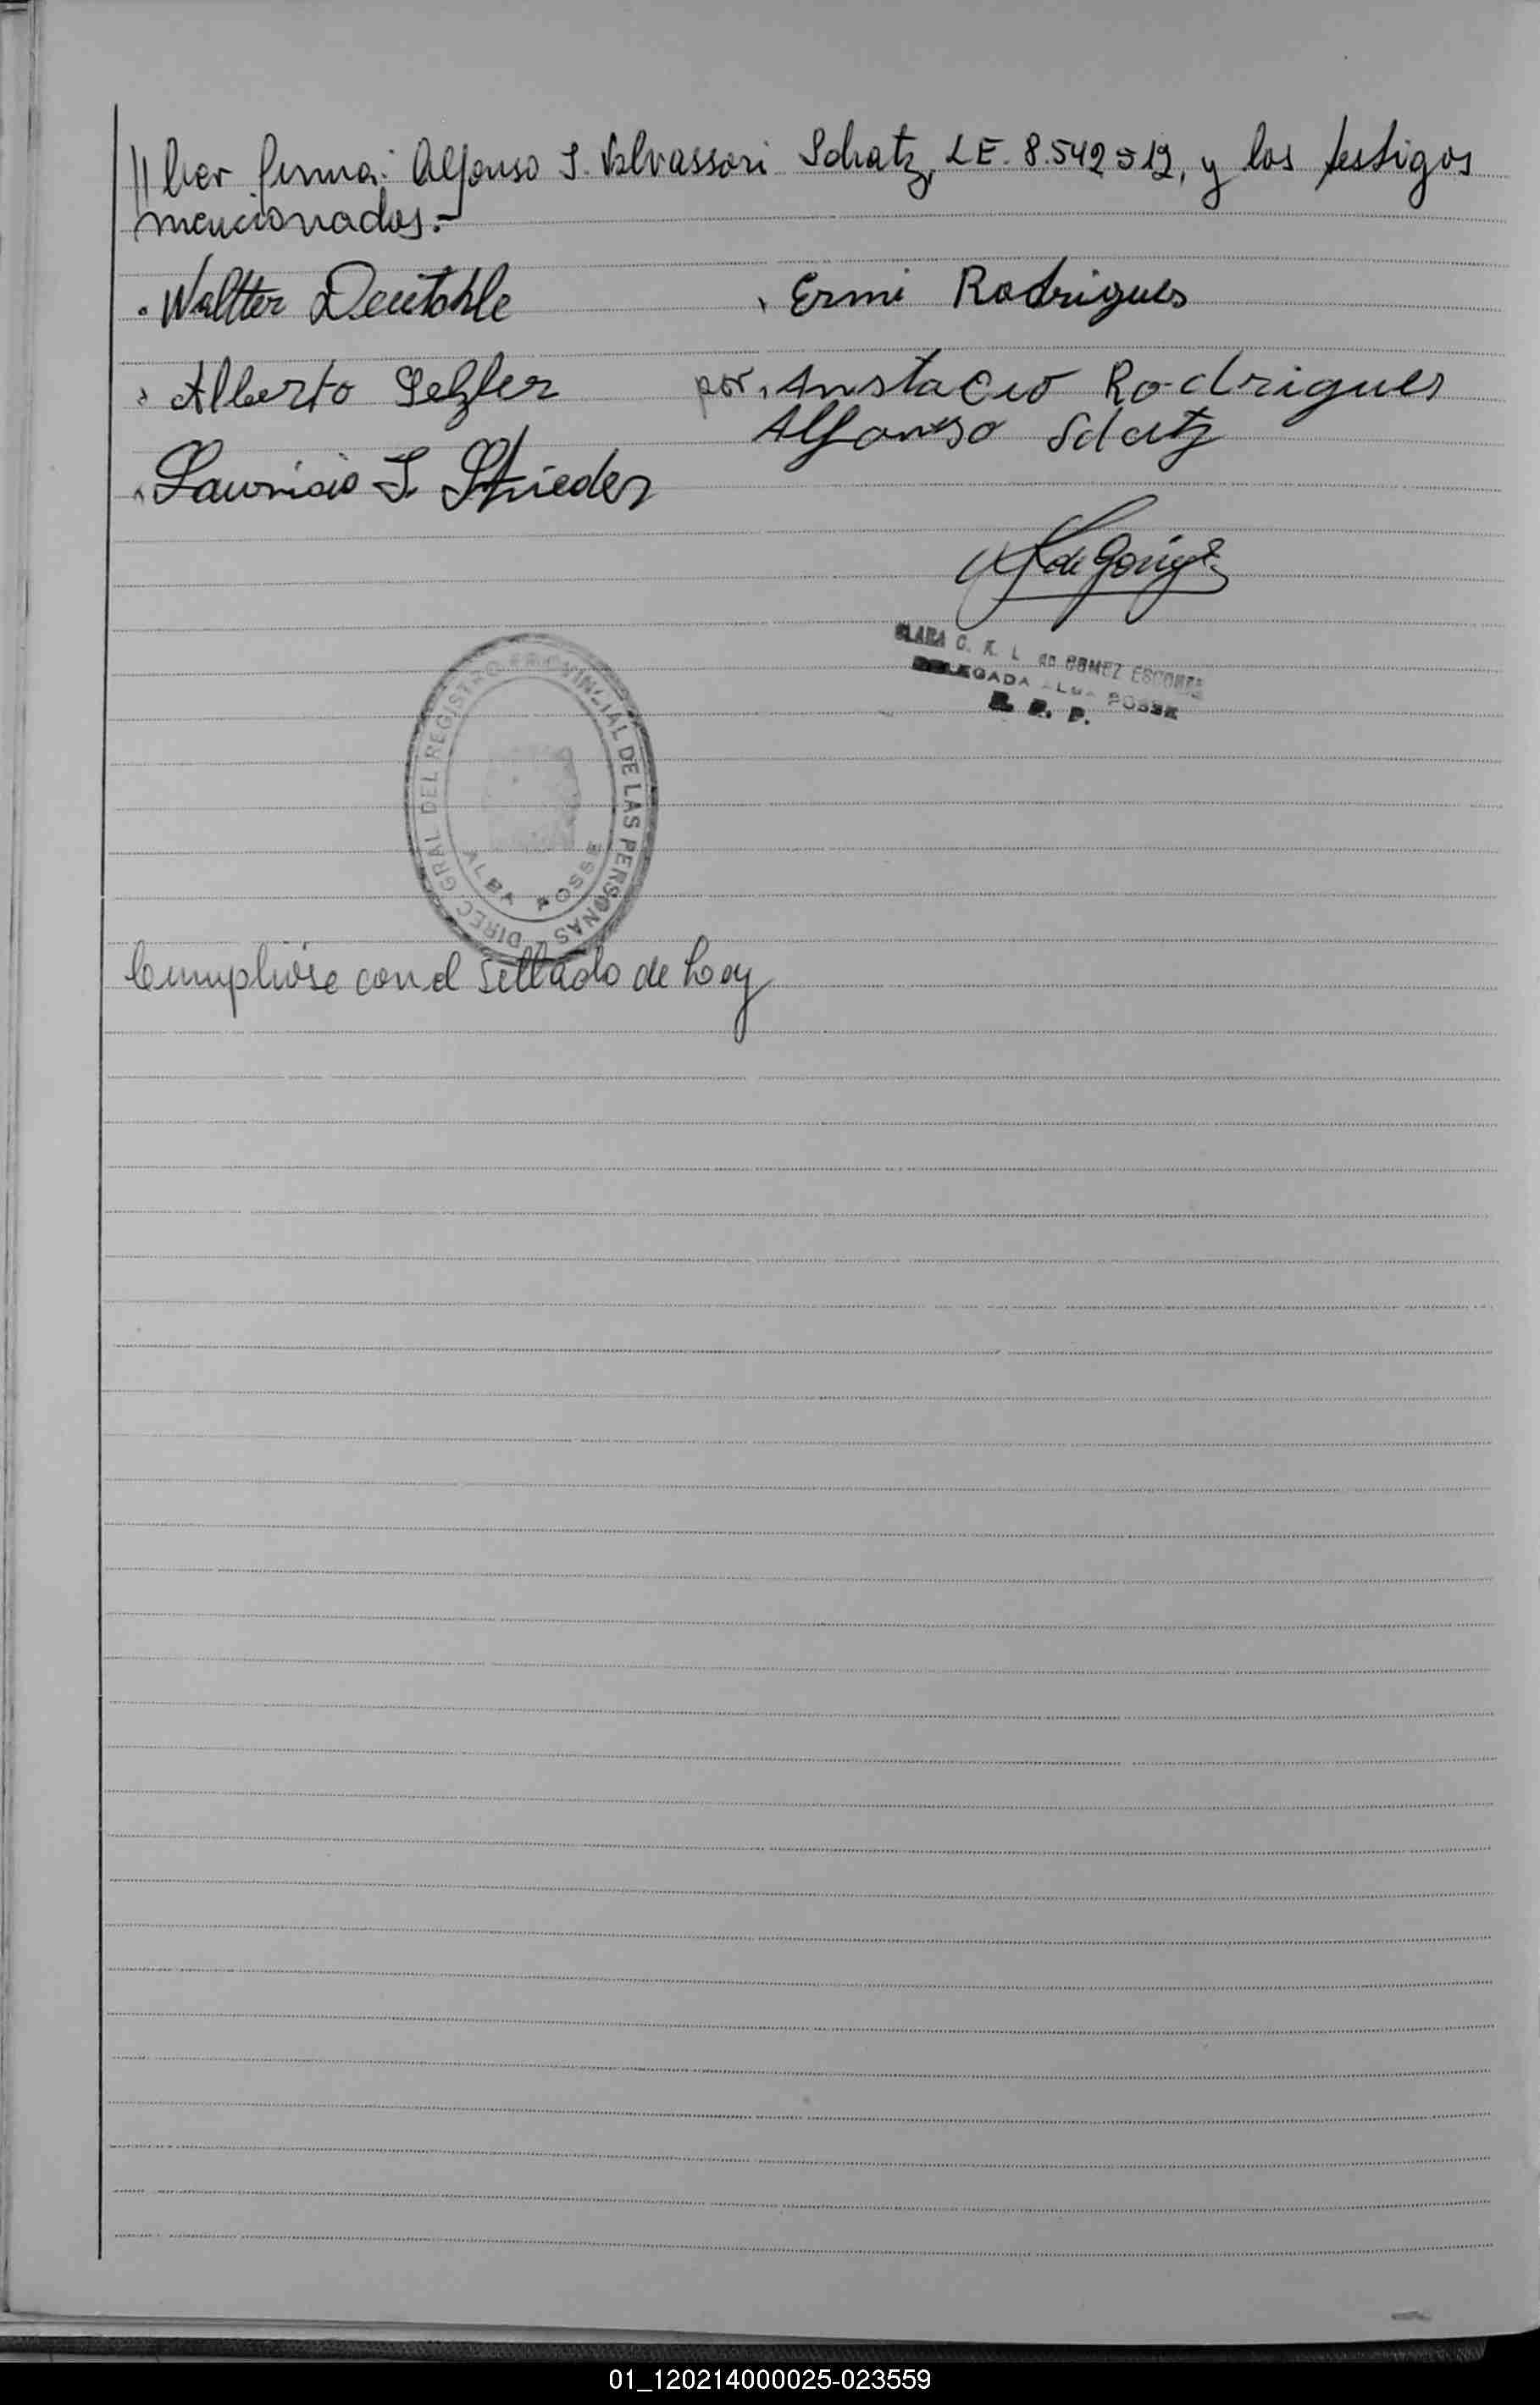 //cer firma: Alfonso S. Valvassori Schatz, L.E. 8.542.519, y los testigos
mencionados.-
Waltter Deutohle
Ermi Rodrigues
Alberto Selzler
por. Anstacio Rodrigues
Alfonso Schatz
Laurisio S. Strieder
de Gomez
CLARA C. K. L de GOMEZ ESCOBAR
DELEGADA ALBA POSSE
R. P. P.
DIREC GRAL DEL REGISTRO PROVINCIAL DE LAS PERSONAS
ALBA POSSE
Cumplióse con el sellado de Ley
01_120214000025-023559